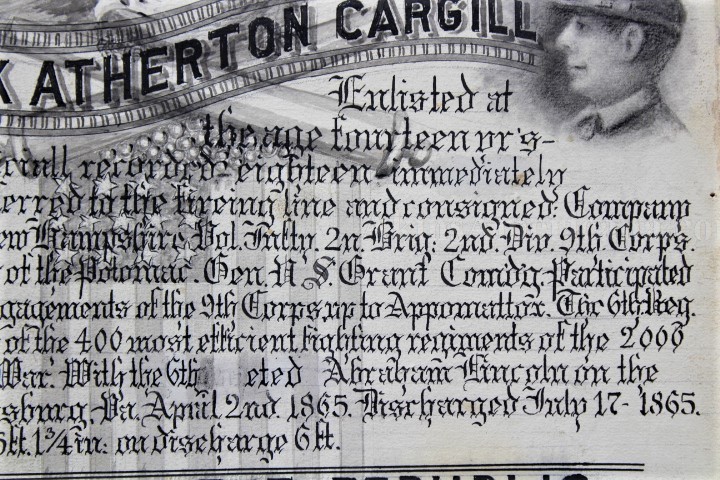 K ATHERTON CARGILL
Enlisted at
the age fourteen yr's-
recorded eighteen immediately
erred to the fireing line and consigned: Company
ew Hampshire Vol. Infty. 2n. Brig. 2nd. Div. 9th. Corps.
of the Potomac. Gen. U. S. Grant Comdg. Participated
gagements of the 9th Corps up to Appomattox. The 6th Reg.
of the 400 most efficient fighting regiments of the 2000
War. With the 6th eted Abraham Lincoln on the
sburg, Va. April 2nd 1865. Discharged July 17- 1865.
5ft. 1 3/4 in: on discharge 6ft.
REPUBLIC